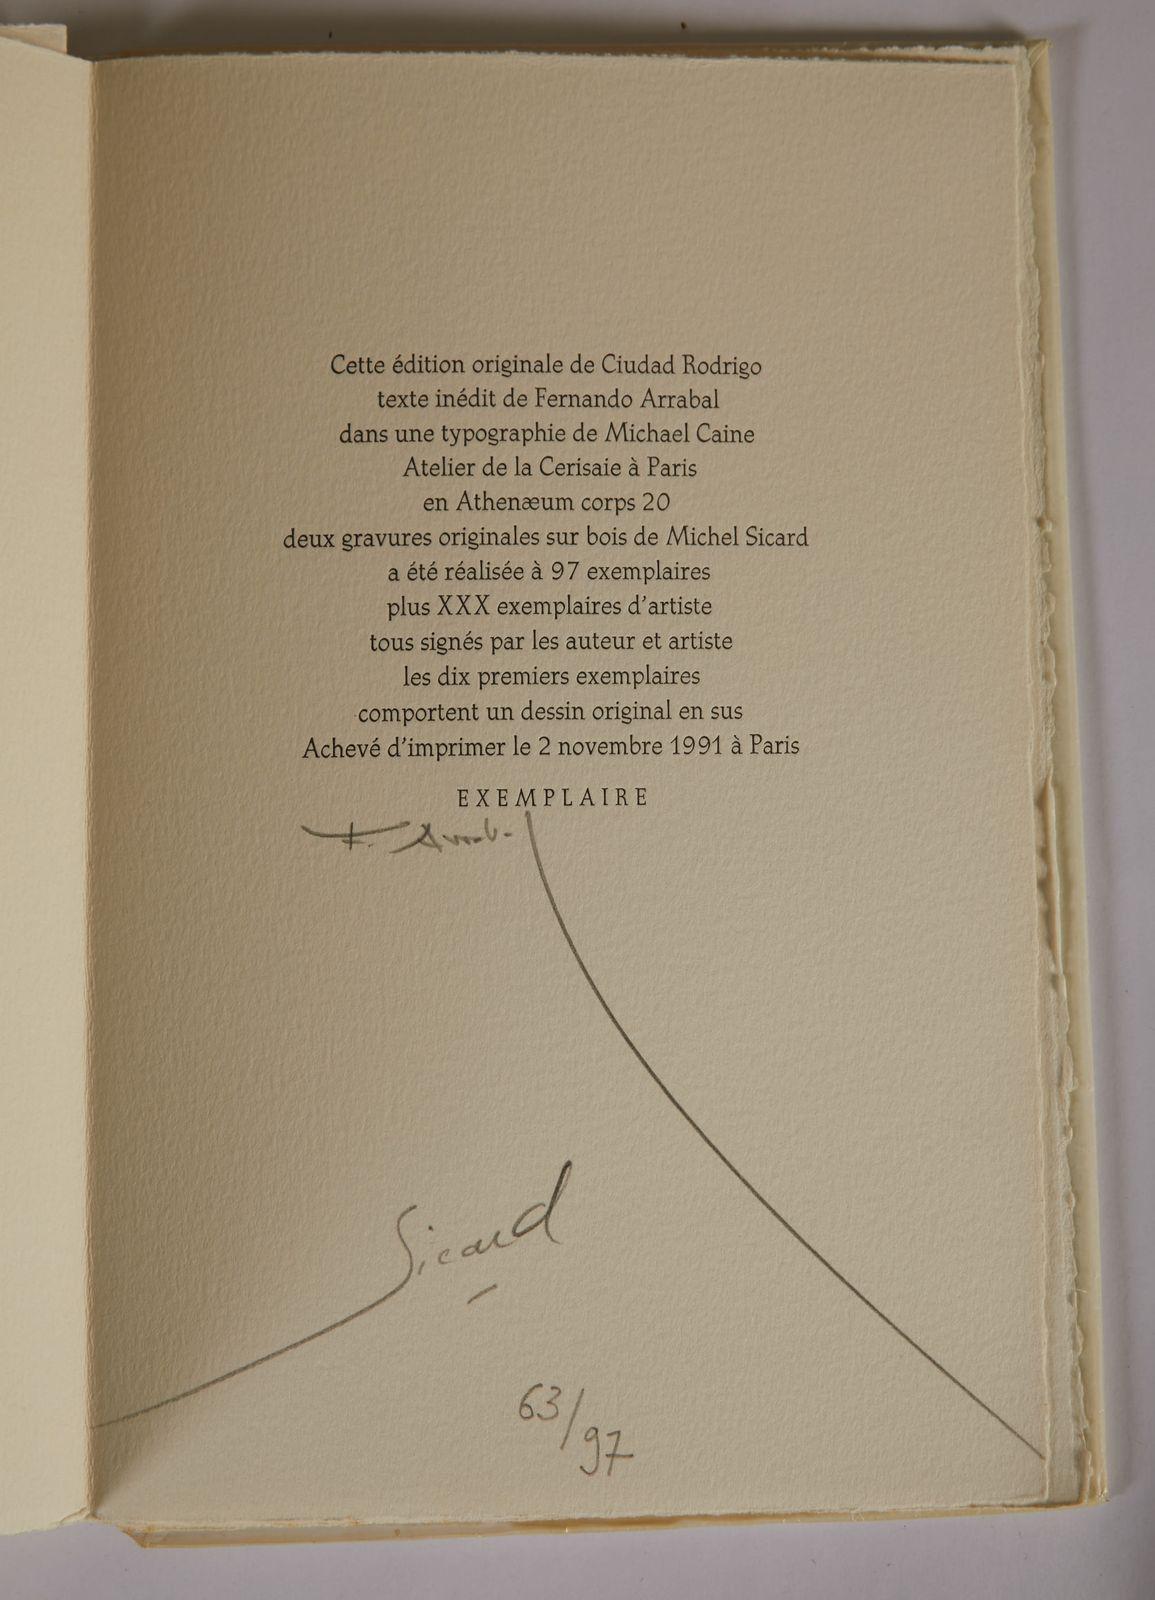 Cette édition originale de Ciudad Rodrigo
texte inédit de Fernando Arrabal
dans une typographie de Michael Caine
Atelier de la Cerisaie à Paris
en Athenæum corps 20
deux gravures originales sur bois de Michel Sicard
a été réalisée à 97 exemplaires
plus XXX exemplaires d'artiste
tous signés par les auteur et artiste
les dix premiers exemplaires
comportent un dessin original en sus
Achevé d'imprimer le 2 novembre 1991 à Paris
EXEMPLAIRE
F.
Sicard
63/97